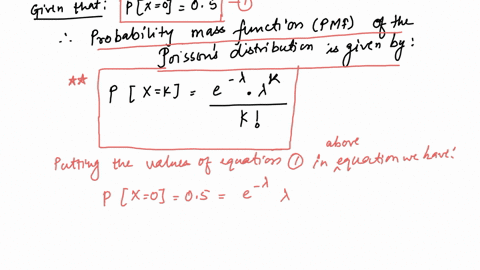 Given that: P[X=0] = 0.5 — ①
∴ Probability mass function (PMF) of the
Poisson's distribution is given by:
** P [X=K] = e^-λ . λ^K / K!
above
Putting the values of equation ① in ^ equation we have:
P [X=0] = 0.5 = e^-λ λ